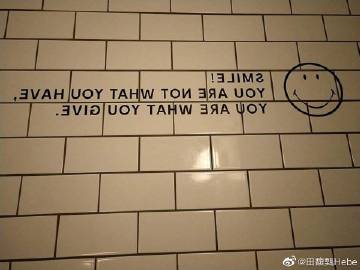 SMILE!
YOU ARE NOT WHAT YOU HAVE,
YOU ARE WHAT YOU GIVE.
@田馥甄Hebe